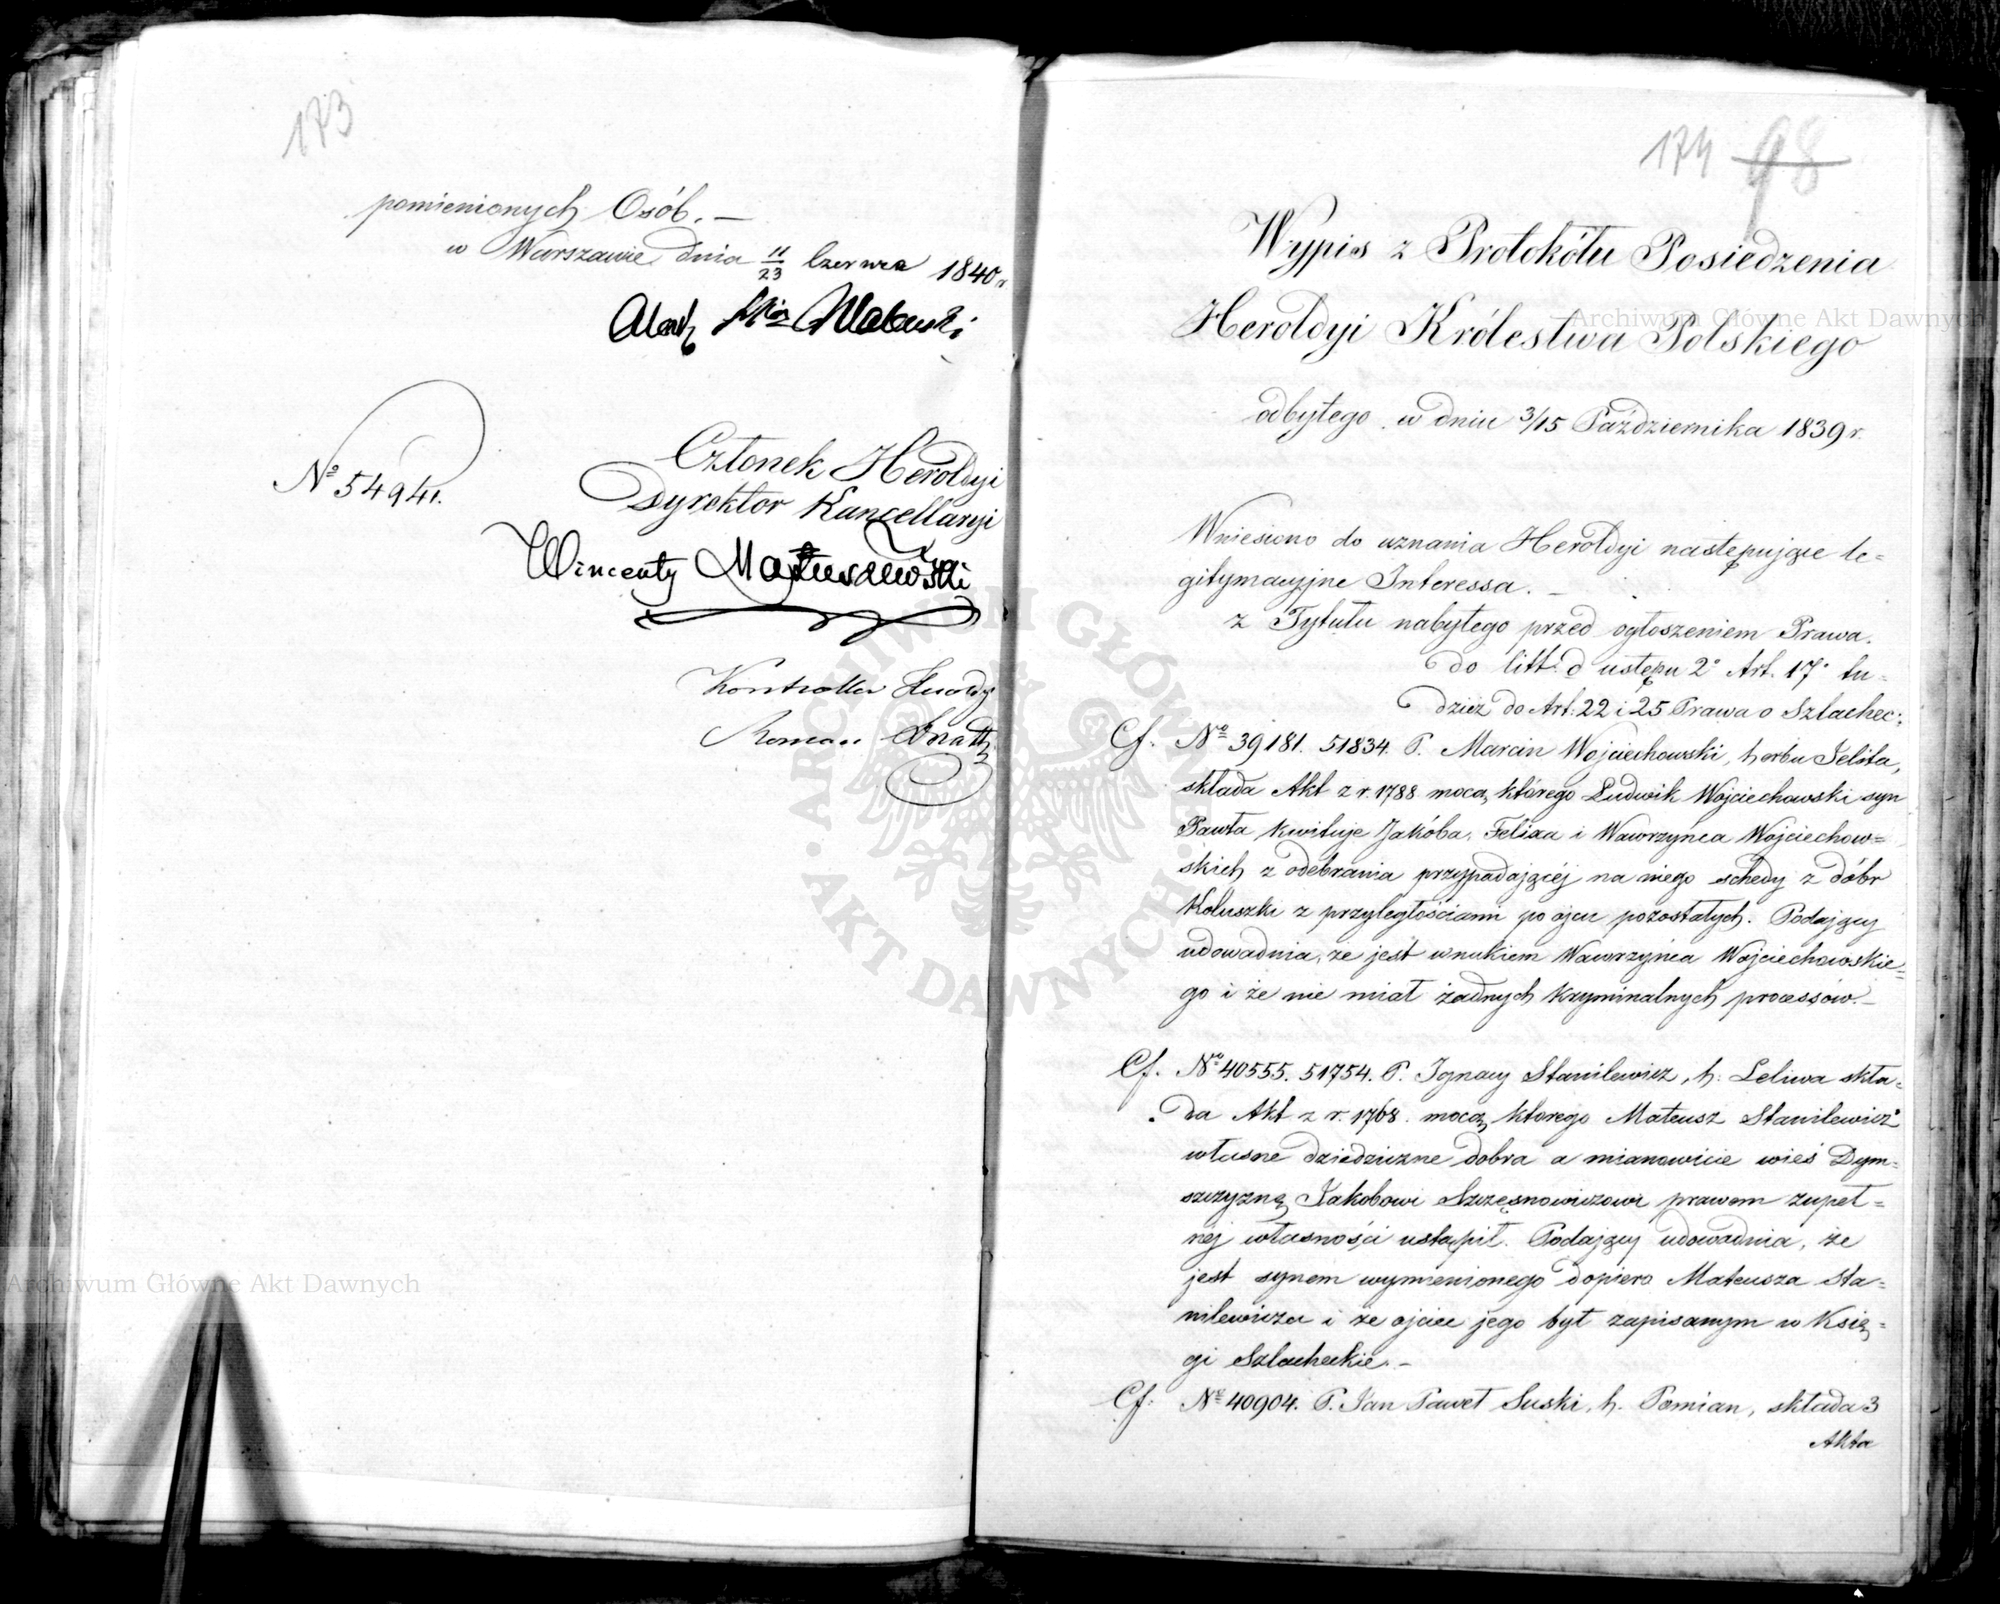 173
pomienionych Osób. —
w Warszawie dnia 11/23 Czerwca 1840 r.
Członek Heroldyi
Dyrektor Kancellaryi
No 54941.
Wincenty Matuszewski
Kontroller Heroldyi
Roman
174 98
Wypis z Protokółu Posiedzenia
Heroldyi Królestwa Polskiego
odbytego w dniu 3/15 Października 1839 r.
Wniesiono do uznania Heroldyi następujące le-
gitymacyjne Interessa. —
z Tytułu nabytego przed ogłoszeniem Prawa.
do litt: d ustępu 2o Art. 17o tu-
dzież do Art: 22 i 25 Prawa o Szlachec:
Cf. No 39181. 51834. P. Marcin Wojciechowski, herbu Jelita,
składa Akt z r. 1788 mocą którego Ludwik Wojciechowski syn
Pawła kwituje Jakóba, Felixa i Wawrzyńca Wojciechow=
skich z odebrania przypadającéj na niego schedy z dóbr
Koluszki z przyległościami po ojcu pozostałych. Podający
udowadnia, że jest wnukiem Wawrzyńca Wojciechowskie=
go i że nie miał żadnych kryminalnych processów. —
Cf. No 40555. 51754. P. Ignacy Stanilewicz, h: Leliwa skła=
da Akt z r. 1768. mocą ktorego Mateusz Stanilewicz
własne dziedziczne dobra a mianowicie wieś Dym=
szczyznę Jakobowi Szczęsnowiczowi prawem zupeł=
nej własności ustąpił. Podający udowadnia, że
jest synem wymienionego dopiero Mateusza Sta=
nilewicza i że ojciec jego był zapisanym w Księ=
gi Szlacheckie. —
Cf: No 40904. P. Jan Paweł Suski, h. Pomian, składa 3
Akta
Archiwum Główne Akt Dawnych
Archiwum Główne Akt Dawnych
ARCHIWUM GŁÓWNE · AKT DAWNYCH ·